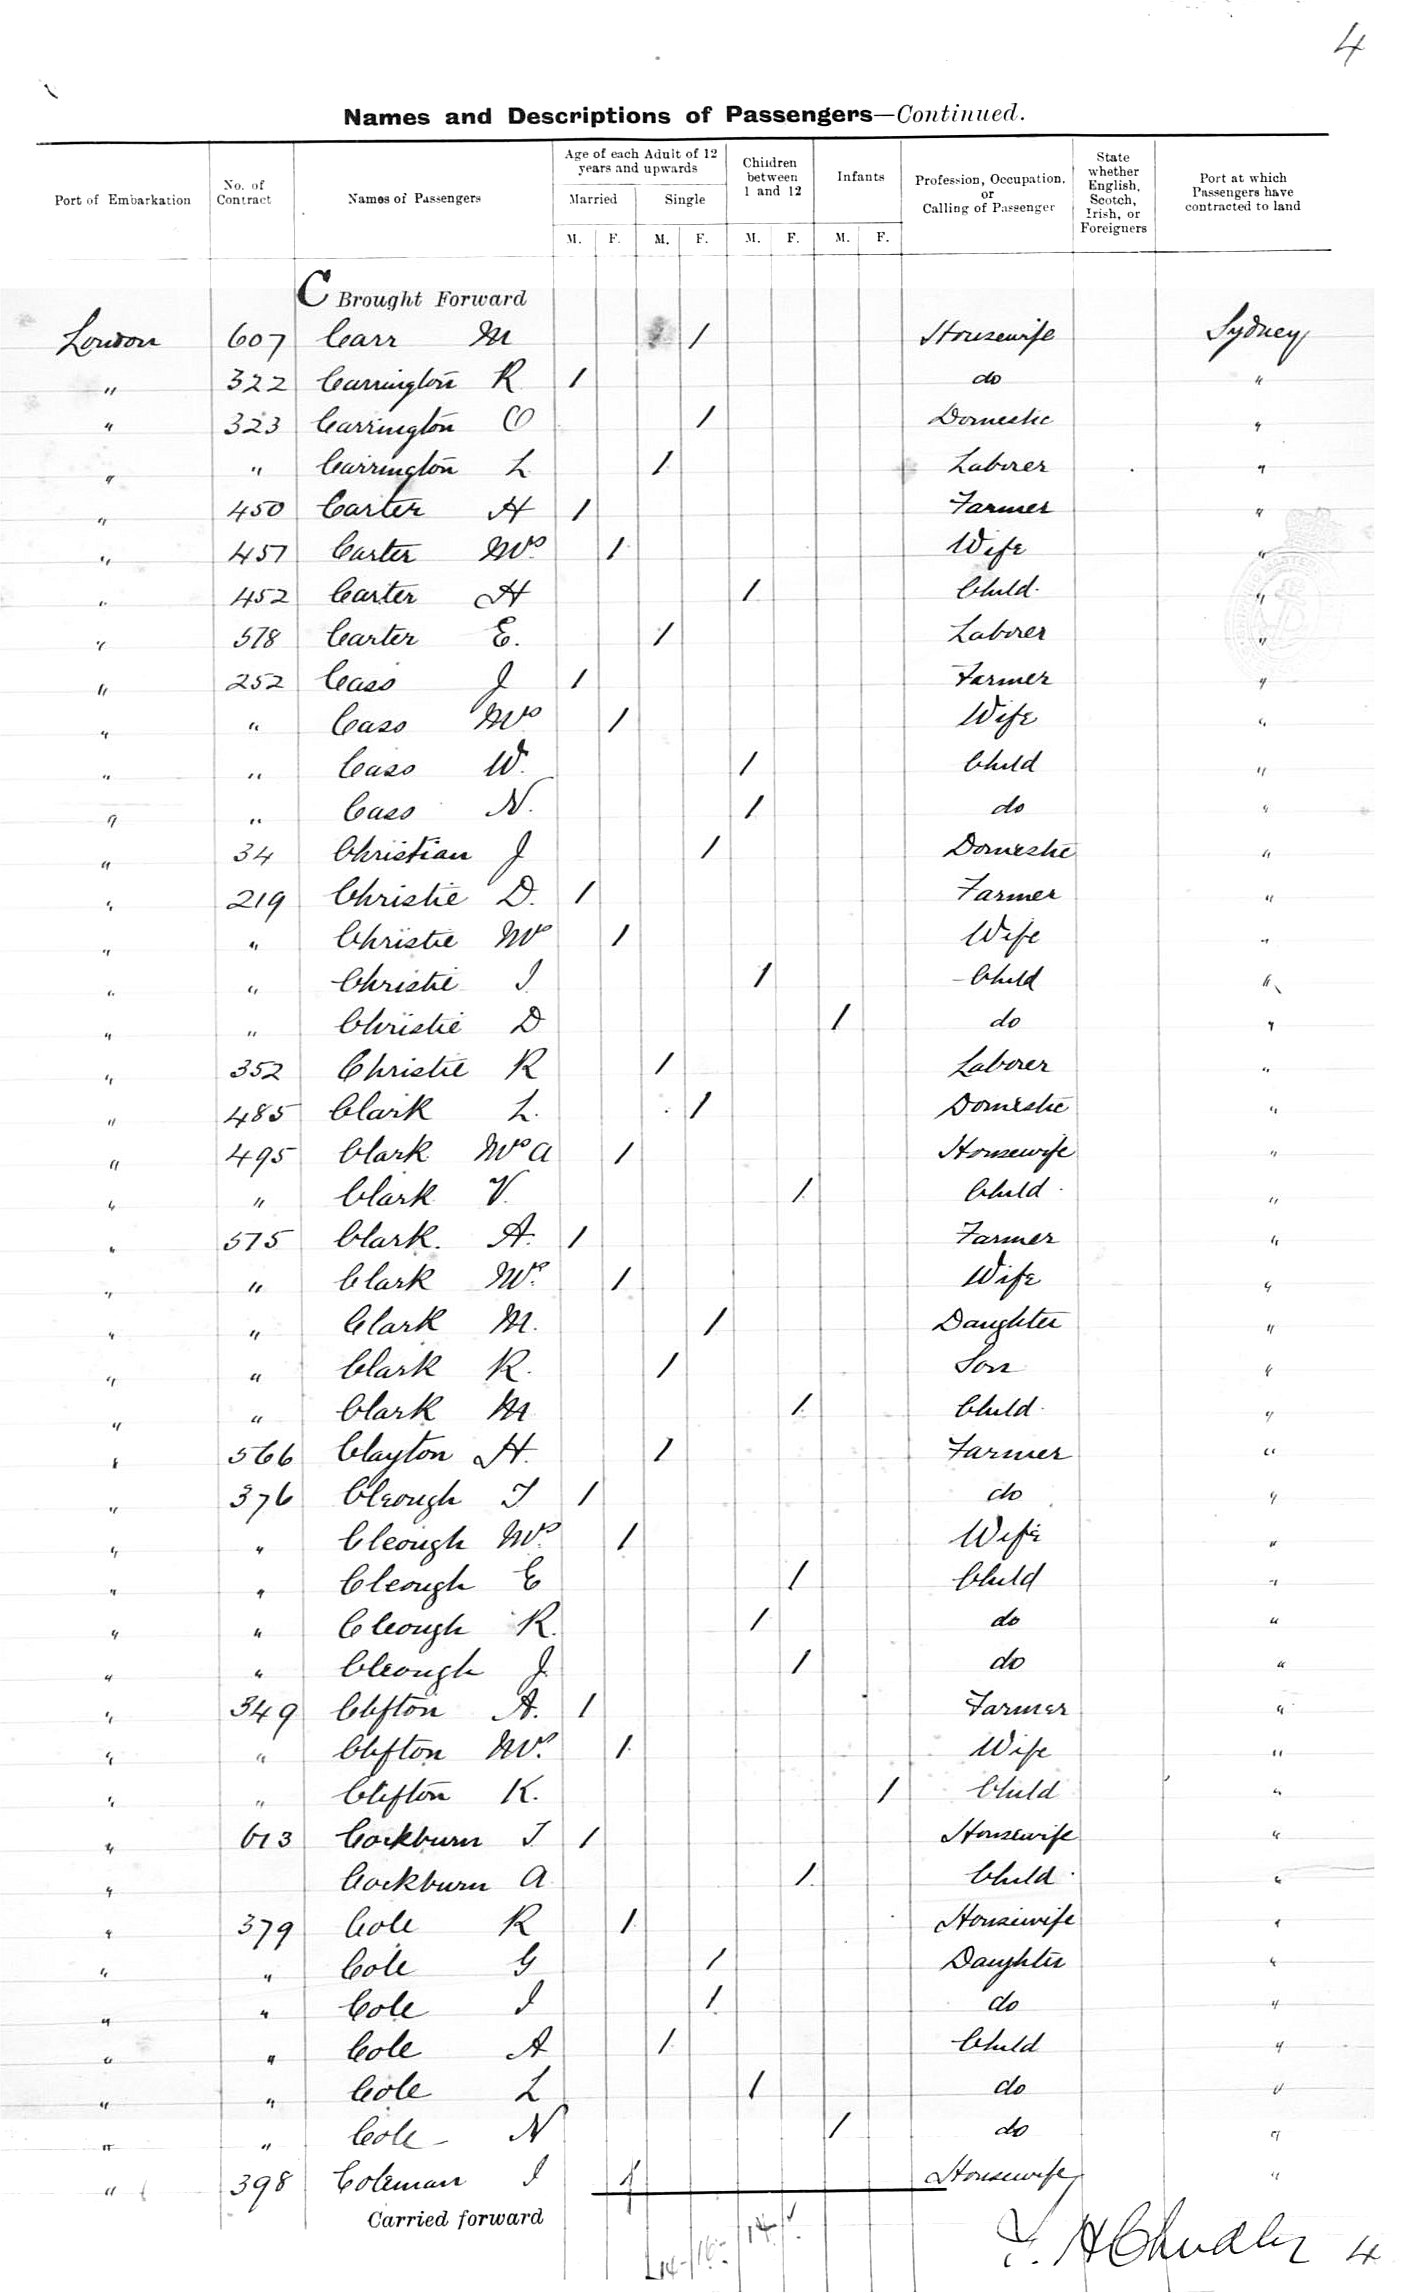 4
Names and Descriptions of Passengers—Continued.
Port of Embarkation No. of Contract Names of Passengers Age of each Adult of 12 years and upwards Married M. F. Single M. F. Children between 1 and 12 M. F. Infants M. F. Profession, Occupation, or Calling of Passenger State whether English, Scotch, Irish, or Foreigners Port at which Passengers have contracted to land
C Brought Forward
London 607 Carr M 1 Housewife Sydney
" 322 Carrington R 1 do "
" 323 Carrington O 1 Domestic "
" " Carrington L 1 Laborer "
" 450 Carter H 1 Farmer "
" 451 Carter Mrs 1 Wife "
" 452 Carter H 1 Child "
" 578 Carter E. 1 Laborer "
" 252 Cass J 1 Farmer "
" " Cass Mrs 1 Wife "
" " Cass W. 1 Child "
" " Cass N. 1 do "
" 34 Christian J 1 Domestic "
" 219 Christie D. 1 Farmer "
" " Christie Mrs 1 Wife "
" " Christie I 1 Child "
" " Christie D 1 do "
" 352 Christie R 1 Laborer "
" 485 Clark L. 1 Domestic "
" 495 Clark Mrs A 1 Housewife "
" " Clark V. 1 Child "
" 575 Clark. A. 1 Farmer "
" " Clark Mrs. 1 Wife "
" " Clark M. 1 Daughter "
" " Clark R. 1 Son "
" " Clark M 1 Child "
" 566 Clayton H. 1 Farmer "
" 376 Cleough T 1 do "
" " Cleough Mrs. 1 Wife "
" " Cleough E 1 Child "
" " Cleough R. 1 do "
" " Cleough J. 1 do "
" 349 Clifton A. 1 Farmer "
" " Clifton Mrs. 1 Wife "
" " Clifton K. 1 Child "
" 613 Cockburn T 1 Housewife "
" Cockburn A 1 Child "
" 379 Cole R 1 Housewife "
" " Cole G 1 Daughter "
" " Cole I 1 do "
" " Cole A 1 Child "
" " Cole L 1 do "
" " Cole N 1 do "
" 398 Coleman I 1 Housewife "
Carried forward
4